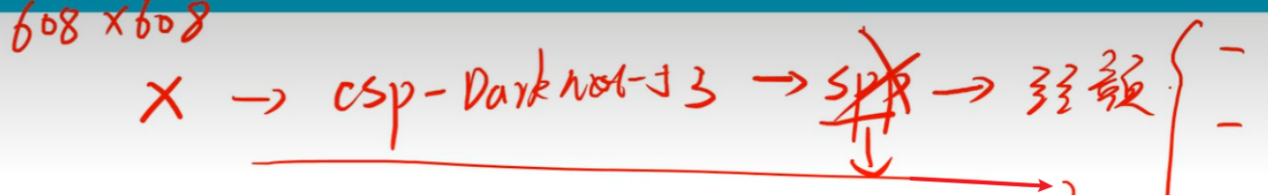 608 × 608
X → CSP-Darknet-53 → SPP → 颈